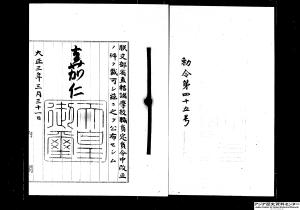 勅令第四十五号
朕文部省直轄諸学校職員定員令中改正
ノ件ヲ裁可シ茲ニ之ヲ公布セシム
嘉仁
天皇御璽
大正三年三月三十一日
アジア歴史資料センター